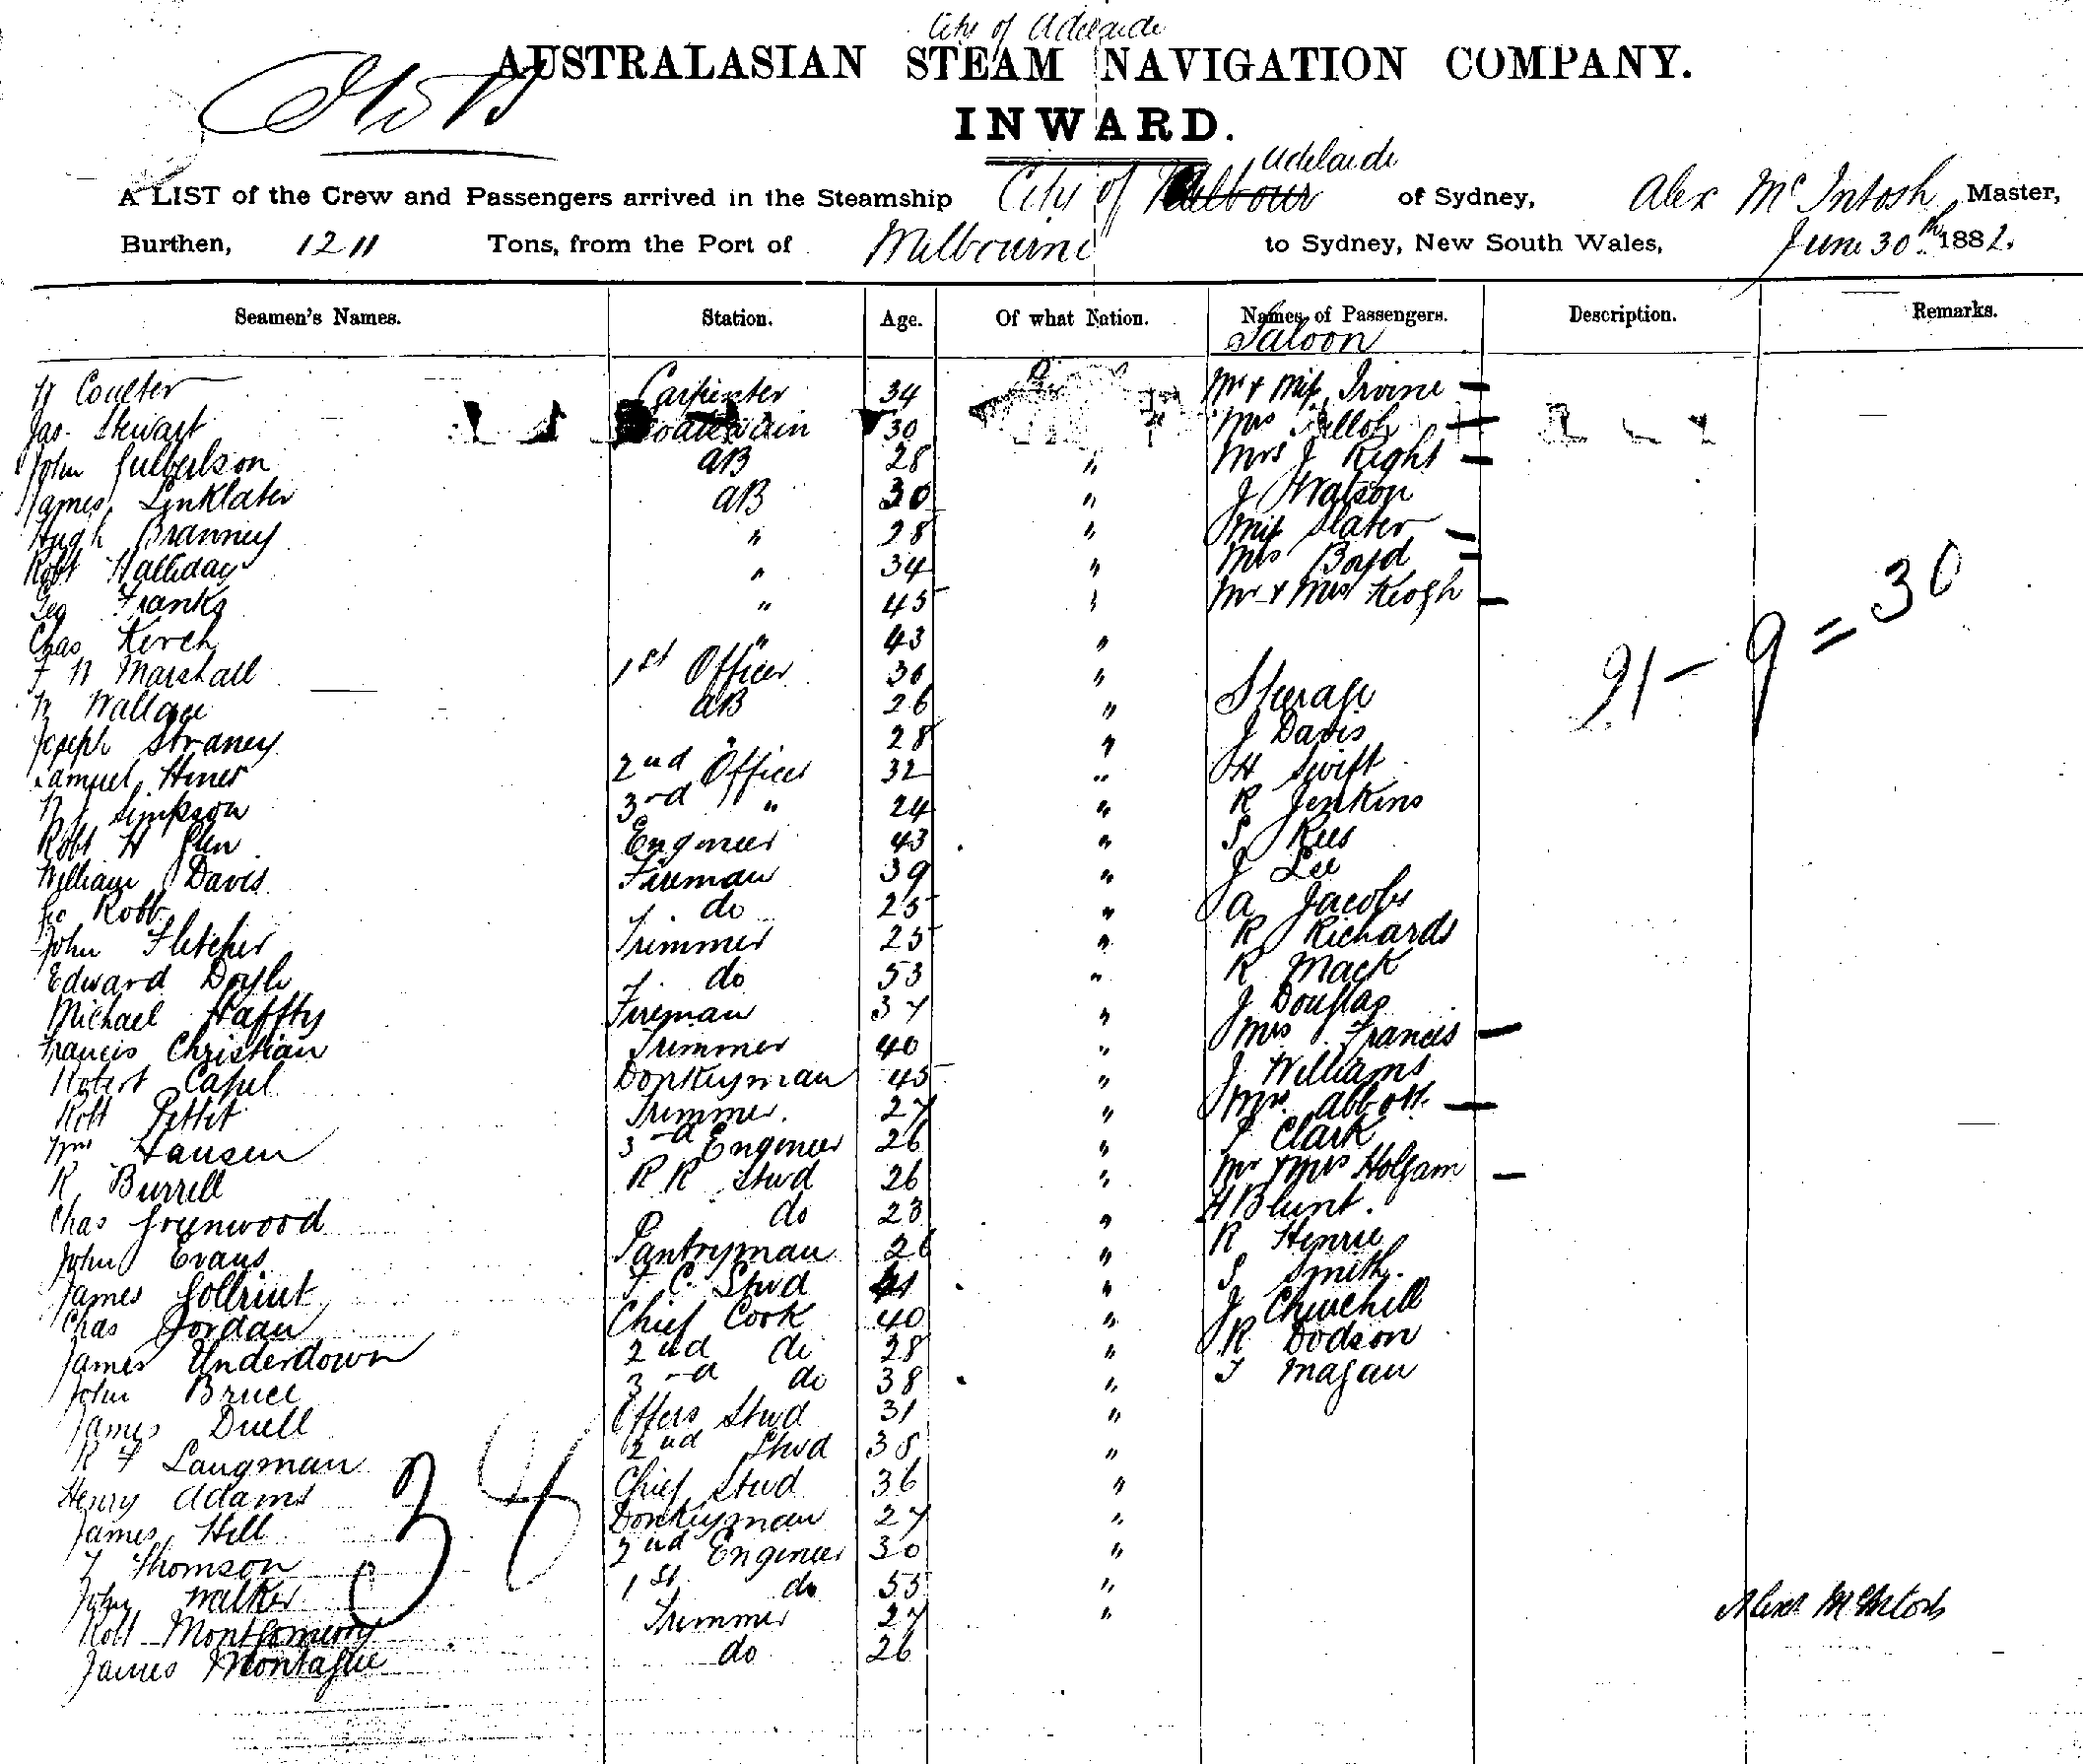 City of Adelaide
AUSTRALASIAN STEAM NAVIGATION COMPANY.
INWARD.
Adelaide
A LIST of the Crew and Passengers arrived in the Steamship City of of Sydney, Alex McIntosh Master,
Burthen, 1211 Tons, from the Port of Melbourne to Sydney, New South Wales, June 30th 1882.
Seamen's Names. Station. Age. Of what Nation. Names of Passengers. Description. Remarks.
Saloon
W Coulter Carpenter 34 Mr & Miss Irvine —
Jas. Stewart Boatswain 30 Mrs —
John Gulbertson AB 28 " Mrs J Kight —
James Linklater AB 30 " J Watson
Hugh Branney " 28 " Miss Slater —
Robt Halliday " 34 " Mrs Boyd —
Geo Franks " 45 " Mr & Mrs Keogh —
Chas Kerch " 43 "
F W Marshall 1st Officer 36 "
W Wallace AB 26 " Steerage
Joseph Straney " 28 " J Davis
Samuel Hines 2nd Officer 32 " H Swift
W J Simpson 3rd " 24 " R Jenkins
Robt H Glen Engineer 43 " S Rees
William Davis Fireman 39 " J Lee
Geo Robb do 25 " A Jacobs
John Fletcher Trimmer 25 " R Richards
Edward Doyle do 53 " R Mack
Michael Haffty Fireman 37 " J Douglas
Francis Christian Trimmer 40 " Mrs Francis —
Robert Capel Donkeyman 45 " J Williams
Robt Pettit Trimmer 27 " Mrs Abbott —
Wm Hansen 3rd Engineer 26 " J Clark
R Burrell R R Stwd 26 " Mr & Mrs Holgam —
Chas Greenwood do 23 " H Blunt.
John Evans Pantryman 26 " R Henrie
James Gollriut F C Stwd 41 " S Smith.
Chas Jordan Chief Cook 40 " J Churchill
James Underdown 2nd do 28 " R Dodson
John Bruce 3rd do 38 " T Magan
James Duell Offers Stwd 31 "
R F Langman 2nd Stwd 38 "
Henry Adams Chief Stwd 36 "
James Hill Donkeyman 27 "
T Thomson 2nd Engineer 30 "
John Walker 1st do 55 "
Robt Montgomery Trimmer 27 "
James Montague do 26
34
21 - 9 = 30
Alexr McIntosh